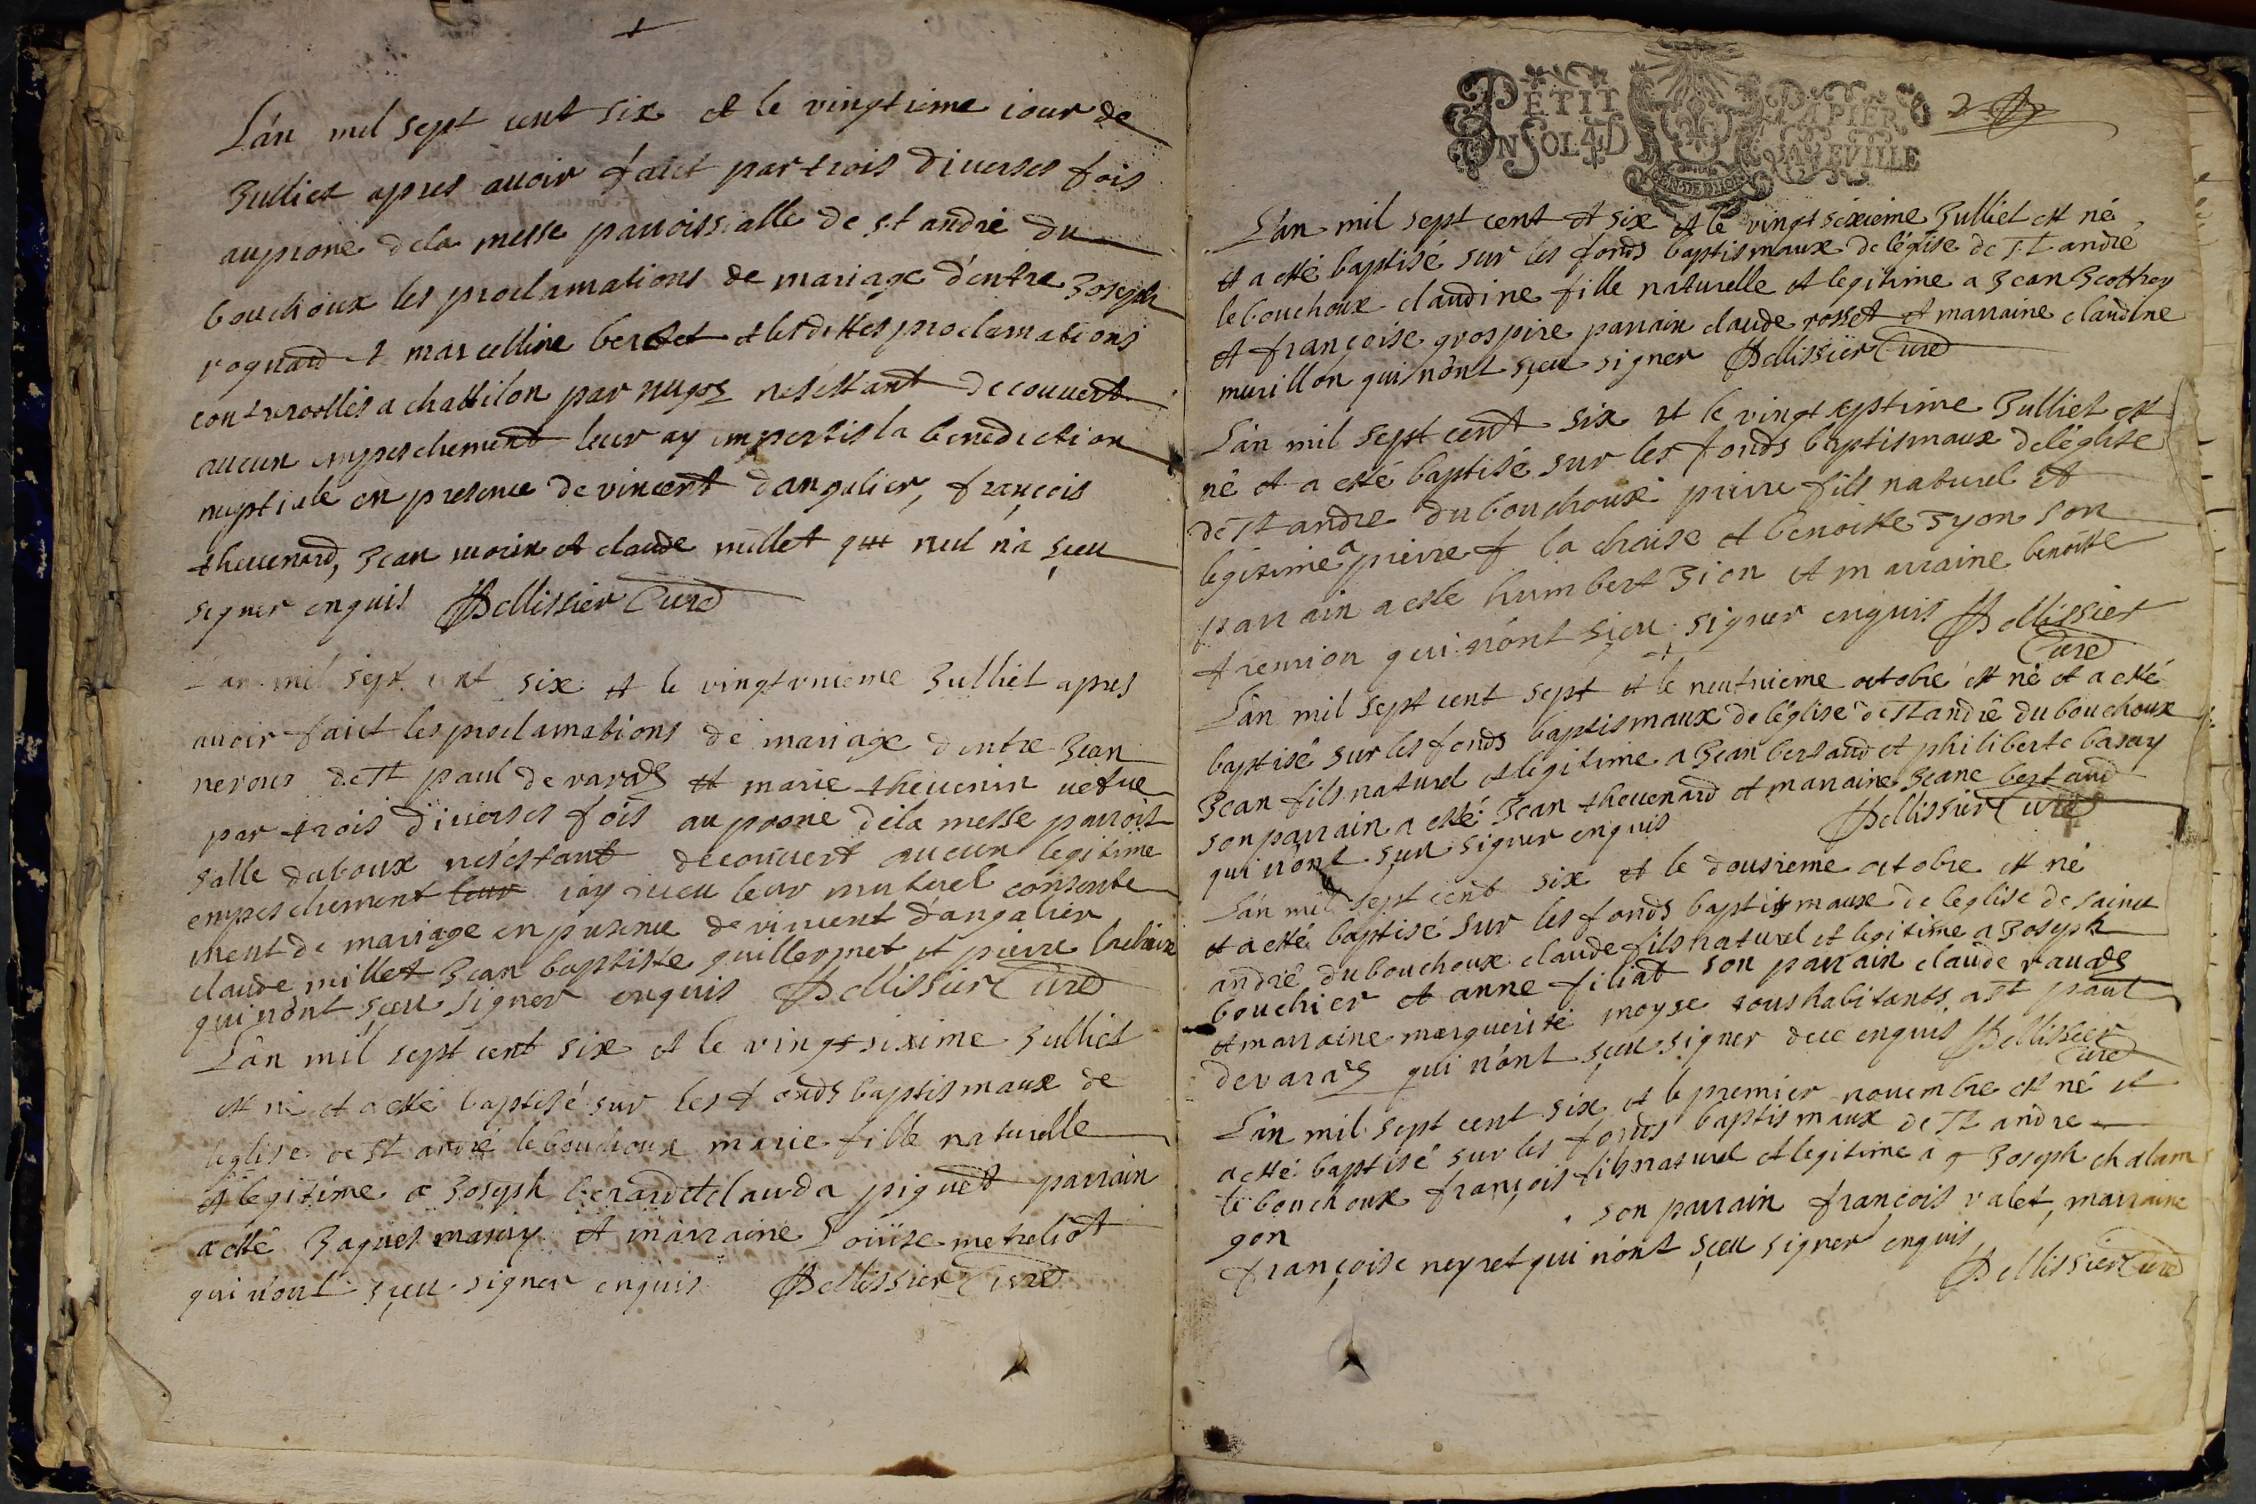 L'an mil sept cent six et le vingtieme iour de
Julliet apres auoir faict par trois diuerses fois
auprone dela messe parroissialle de s.t andré du
bouchoux les proclamations de mariage d'entre Joseph
rognard et marcelline berdet et lesdittes proclamations
controollés a chattilon par nugoz nesestant decouvert
aucun empeschement leur ay impertis la benediction
nuptiale en presence de vincent dangalier, françois
theuenard, Jean morin et claude millet qui nul n'a sçeu
signer enquis Pellissier Curé
L'an mil sept cent six et le vingtvnieme Julliet apres
auoir faict les proclamations de mariage dentre Jean
nerous de St paul de varads et marie theuenin uefue
par trois diuerses fois au prone dela messe parrois
salle duboux nesestant decouuert aucun legitime
empeschement leur iay receu leur mutuel consente
ment de mariage en presence de vincent d'angalier
claude millet Jean baptiste guillermet et pierre lachaise
qui n'ont sçeu signer enquis Pellissier Curé
L'an mil sept cent six et le vingt sixime Julliet
est né et a etté baptisé sur les fonds baptismaux de
leglise de St andré lebouchoux marie fille naturelle
et legitime a Joseph berard et clauda piguet parrain
a etté Jaques maruy et marraine Louise metraliot
qui n'ont sçeu signer enquis Pellissier Curé
PETIT PAPIER
UN SOL 4D LA FEUILLE
2
L'an mil sept cent et six et le vingt sixieme Julliet est né
et a etté baptisé sur les fonds baptismaux de légtise de St andré
lebouchoux claudine fille naturelle et legitime a Jean Jeoffroy
et françoise grospire parrain claude rosset et marraine claudine
murillon qui n'ont sçeu signer Pellissier Curé
L'an mil sept cent six et le vingt septime Julliet est
né et a etté baptisé sur les fonds baptismaux deléglise
de St andre dubouchoux pierre fils naturel et
legitime a pierre f la chaise et benoitte Jyon son
parrain a etté humbert Jion et marraine benoitte
tremion qui n'ont sçeu signer enquis Pellissier
Curé
L'an mil sept cent sept et le neufuieme octobre est né et a etté
baptisé sur les fonds baptismaux de léglise de St andré dubouchoux
Jean fils naturel et legitime a Jean bertaud et philiberte basuy
son parrain a etté Jean theuenard et marraine Jeane bertaud
qui n'ont sçeu signer enquis Pellissier Curé
L'an mil sept cent six et le dousieme octobre est né
et a etté baptisé sur les fonds baptismaux de leglise de sainct
andré dubouchoux claude fils naturel et legitime a Joseph
bouchier et anne filiat son parrain claude rauads
et marraine marguerite moyse tous habitants a St paul
de varads qui n'ont sçeu signer dece enquis Pellissier
Curé
L'an mil sept cent six et le premier nouembre est né et
a etté baptisé sur les fonds baptismaux de St andre
le bouchoux françois fils naturel et legitime a Joseph chalam
gon son parrain françois valet, marraine
françoise neyret qui n'ont sçeu signer enquis
Pellissier Curé